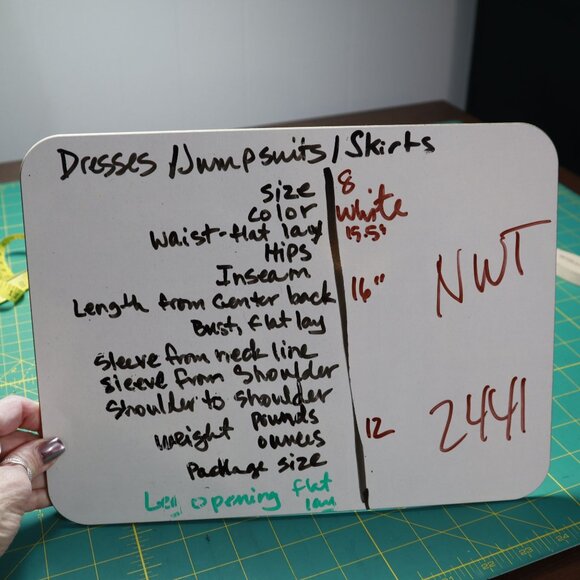 Dresses/Jumpsuits/Skirts
size 8
color White
Waist-flat lay 15.5"
Hips
Inseam
Length from Center back 16"
Bust, flat lay
Sleeve from neck line
Sleeve from Shoulder
Shoulder to Shoulder
Weight Pounds
ounces 12
Package size
Leg opening flat
lay
NWT
2441